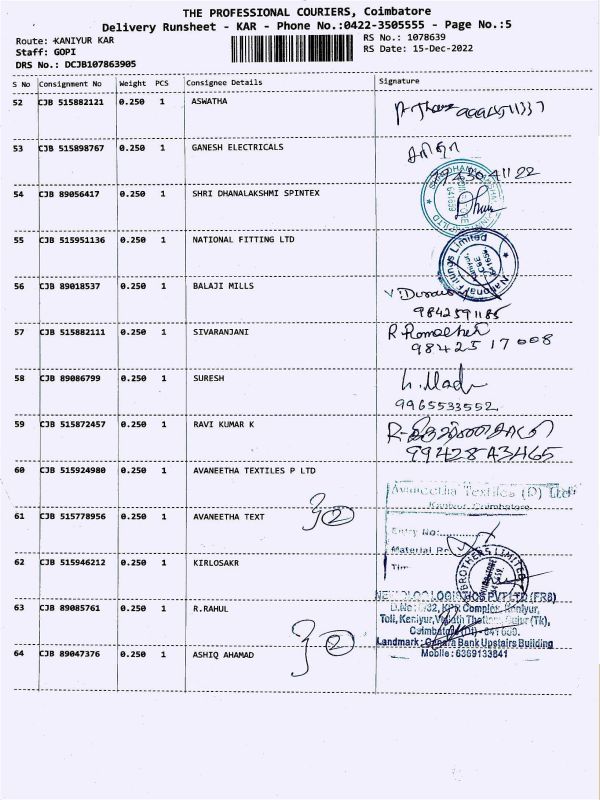 THE PROFESSIONAL COURIERS, Coimbatore
Delivery Runsheet - KAR - Phone No.:0422-3505555 - Page No.:5
Route: KANIYUR KAR
RS No.: 1078639
Staff: GOPI
RS Date: 15-Dec-2022
DRS No.: DCJB107863905
S No Consignment No Weight PCS Consignee Details Signature
52 CJB 515882121 0.250 1 ASWATHA
53 CJB 515898767 0.250 1 GANESH ELECTRICALS
54 CJB 89056417 0.250 1 SHRI DHANALAKSHMI SPINTEX
55 CJB 515951136 0.250 1 NATIONAL FITTING LTD
National Fittings Limited
56 CJB 89018537 0.250 1 BALAJI MILLS
9842591185
57 CJB 515882111 0.250 1 SIVARANJANI
98425 17008
58 CJB 89086799 0.250 1 SURESH
9965533552
59 CJB 515872457 0.250 1 RAVI KUMAR K
60 CJB 515924980 0.250 1 AVANEETHA TEXTILES P LTD
Avaneetha Textiles (P) Ltd
Kaniyur, Coimbatore
61 CJB 515778956 0.250 1 AVANEETHA TEXT
2
Entry No:
Material
62 CJB 515946212 0.250 1 KIRLOSAKR
BROTHERS LIMITED
63 CJB 89085761 0.250 1 R.RAHUL
LOGISTICS PVT LTD (FR8)
KPR Complex, Kaniyur,
Toll, Kaniyur,
64 CJB 89047376 0.250 1 ASHIQ AHAMAD
2
Landmark: Canara Bank Upstairs Building
Mobile: 6369133841